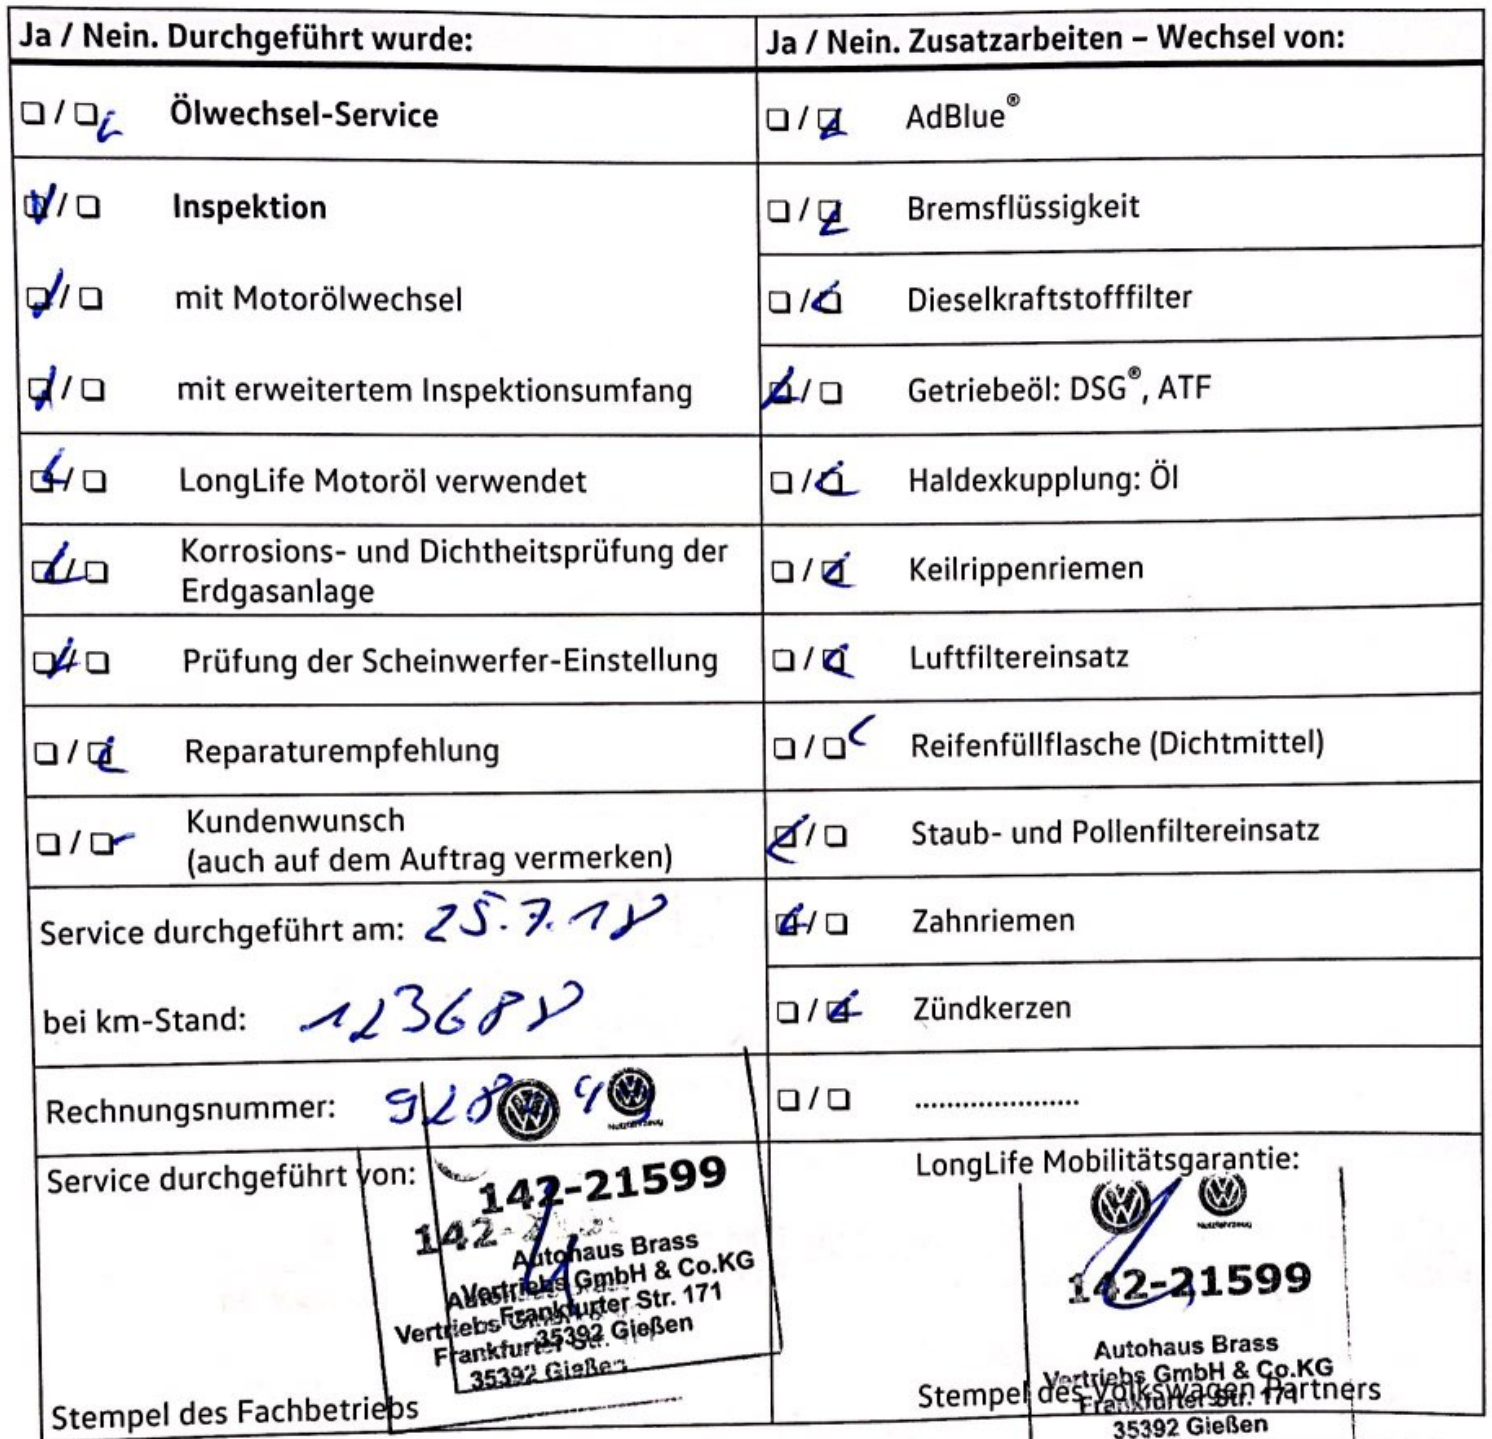 Ja / Nein. Durchgeführt wurde:
☐ / ☑ Ölwechsel-Service
☑ / ☐ Inspektion
☑ / ☐ mit Motorölwechsel
☑ / ☐ mit erweitertem Inspektionsumfang
☑ / ☐ LongLife Motoröl verwendet
☑ / ☐ Korrosions- und Dichtheitsprüfung der
Erdgasanlage
☑ / ☐ Prüfung der Scheinwerfer-Einstellung
☐ / ☑ Reparaturempfehlung
☐ / ☑ Kundenwunsch
(auch auf dem Auftrag vermerken)
Service durchgeführt am: 25.7.18
bei km-Stand: 123688
Rechnungsnummer:
Nutzfahrzeug
Service durchgeführt von:
142-21599
142-
Autohaus Brass
Vertriebs GmbH & Co.KG
Frankfurter Str. 171
35392 Gießen
Vertriebs
Frankfurter Str.
35392 Gießen
Stempel des Fachbetriebs
Ja / Nein. Zusatzarbeiten – Wechsel von:
☐ / ☑ AdBlue®
☐ / ☑ Bremsflüssigkeit
☐ / ☑ Dieselkraftstofffilter
☑ / ☐ Getriebeöl: DSG®, ATF
☐ / ☑ Haldexkupplung: Öl
☐ / ☑ Keilrippenriemen
☐ / ☑ Luftfiltereinsatz
☐ / ☑ Reifenfüllflasche (Dichtmittel)
☑ / ☐ Staub- und Pollenfiltereinsatz
☑ / ☐ Zahnriemen
☐ / ☑ Zündkerzen
☐ / ☐ .....................
LongLife Mobilitätsgarantie:
Nutzfahrzeug
142-21599
Autohaus Brass
Vertriebs GmbH & Co.KG
Stempel des Volkswagen Partners
Frankfurter Str. 171
35392 Gießen